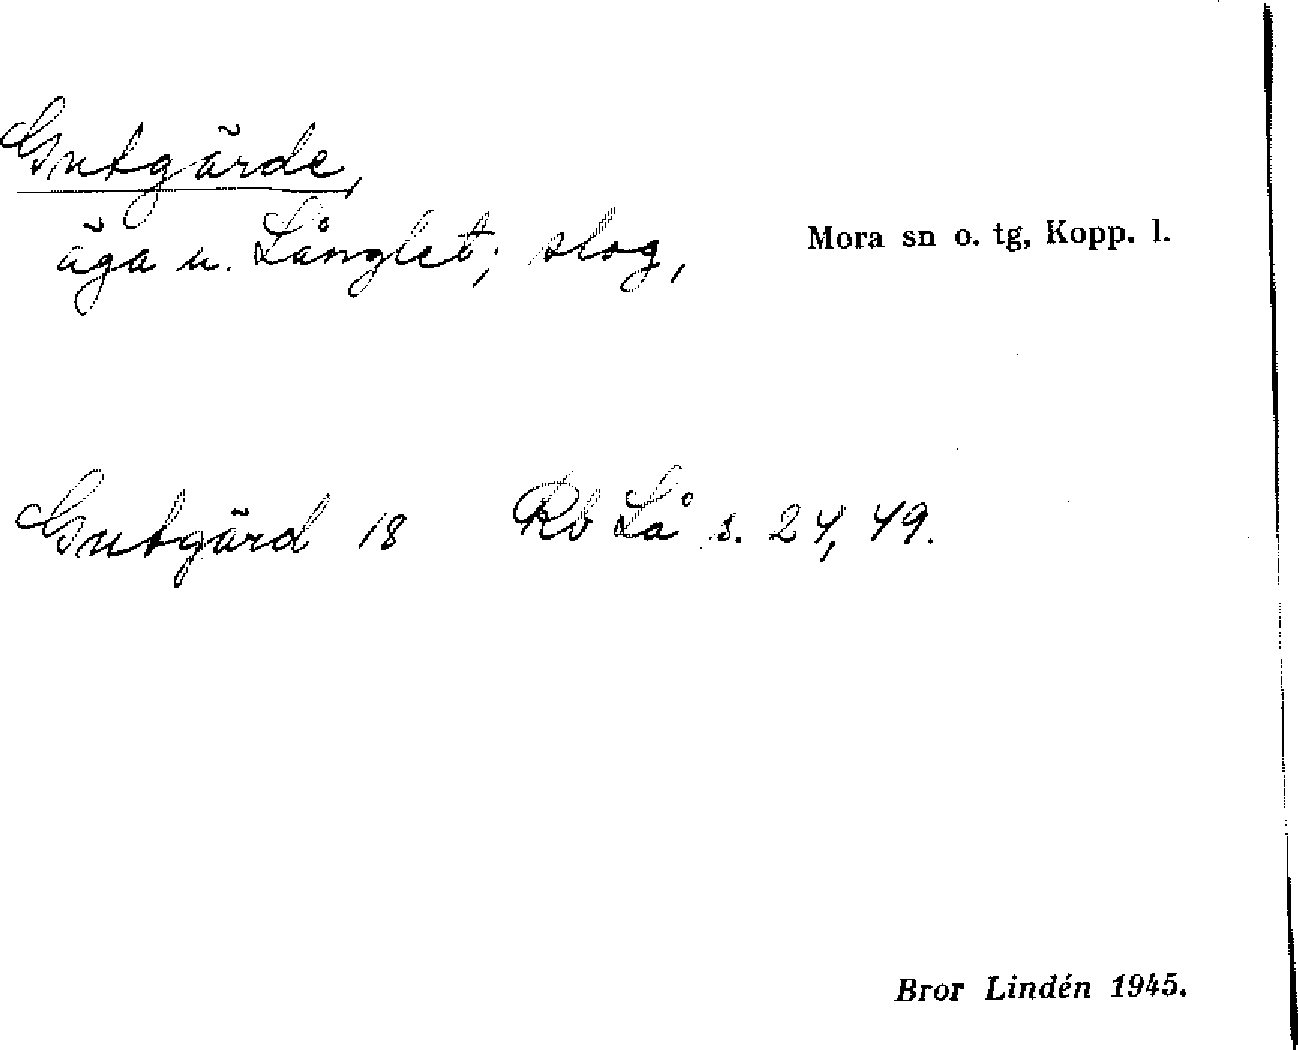 Gutgärde,
äga u. Långlet; slog,
Mora sn o. tg, Kopp. l.
Gutgärd 18 Rb Lå s. 24, 49.
Bror Lindén 1945.